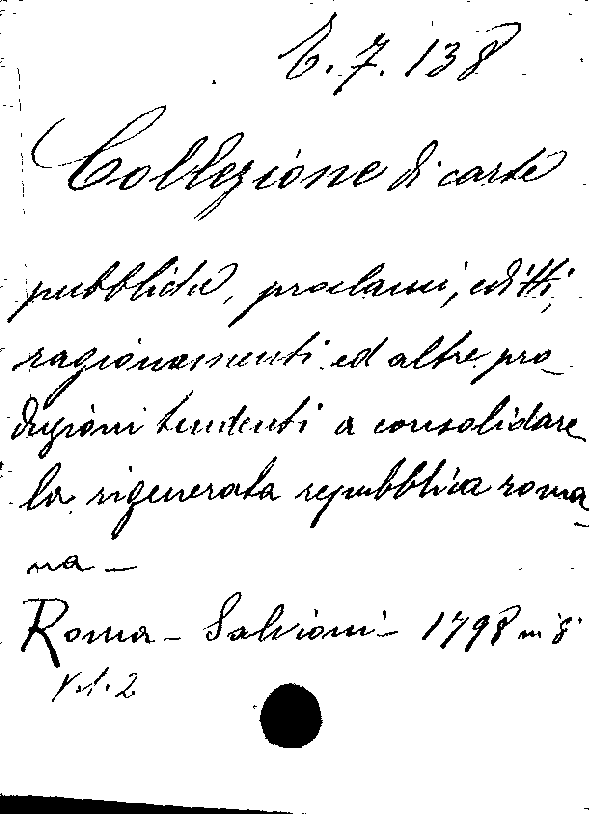 E. 7. 138
Collezione di carte
pubbliche, proclami, editti,
ragionamenti ed altre pro_
duzioni tendenti a consolidare
la rigenerata repubblica roma_
na_
Roma - Salvioni - 1798 in 8°
Vol. 2